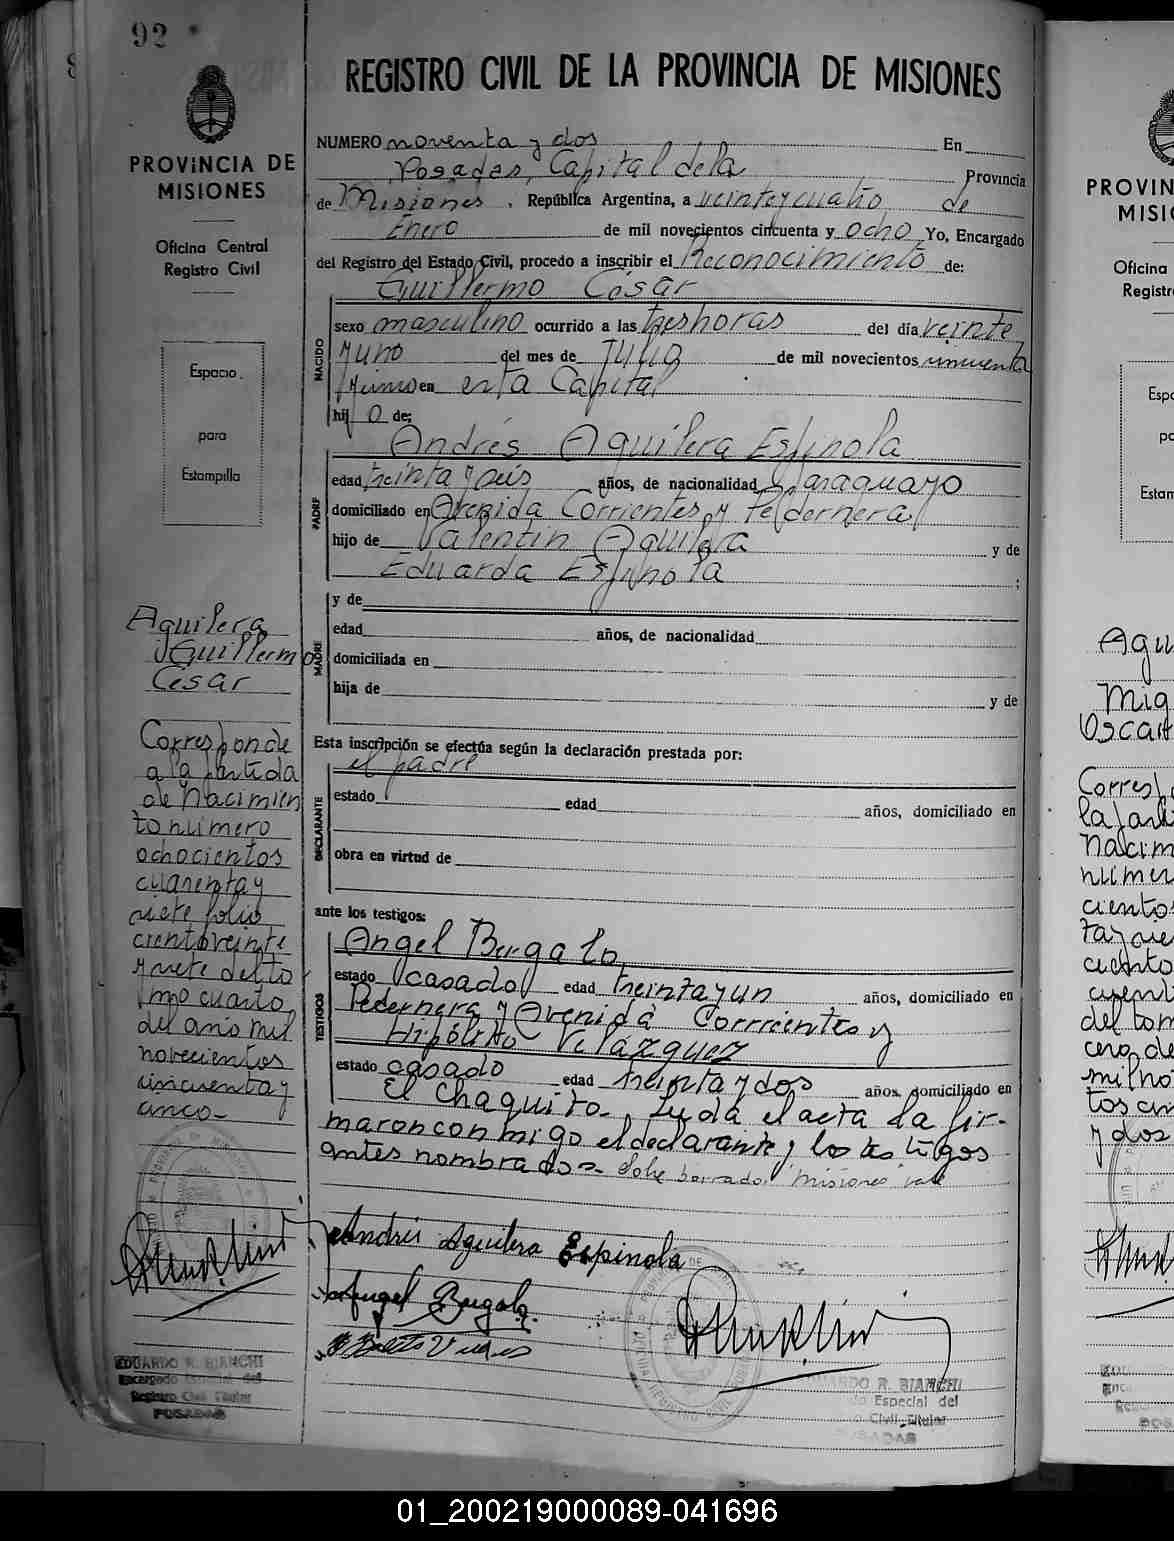 92
REGISTRO CIVIL DE LA PROVINCIA DE MISIONES
PROVINCIA DE
MISIONES
Oficina Central
Registro Civil
Espacio
para
Estampilla
Aguilera
Guillermo
Cesar
Corresponde
a la partida
de Nacimien
to número
ochocientos
cuarenta y
siete folio
ciento veinte
y siete del to
mo cuarto
del año mil
novecientos
cincuenta y
cinco-
EDUARDO R. BIANCHI
Encargado Especial del
Registro Civil Titular
POSADAS
NUMERO noventa y dos En
Posadas, Capital de la Provincia
de Misiones, República Argentina, a veinte y cuatro de
Enero de mil novecientos cincuenta y ocho Yo, Encargado
del Registro del Estado Civil, procedo a inscribir el Reconocimiento de:
Guillermo César
NACIDO
sexo masculino ocurrido a las tres horas del día veinte
y uno del mes de Julio de mil novecientos cincuenta
y cinco en esta Capital
hijo de:
Andrés Aguilera Espinola
PADRE
edad treinta y seis años, de nacionalidad paraguayo
domiciliado en Avenida Corrientes y Pedernera
hijo de Valentin Aguilera y de
Eduarda Espinola ;
MADRE
y de
edad años, de nacionalidad
domiciliada en
hija de y de
Esta inscripción se efectúa según la declaración prestada por:
el padre
DECLARANTE
estado edad años, domiciliado en
obra en virtud de
ante los testigos:
TESTIGOS
Angel Bergalo
estado casado edad treinta y un años, domiciliado en
Pedernera y Avenida Corrientes y
Hipólito Velázquez
estado casado edad treinta y dos años, domiciliado en
El Chaquito-. Leida el acta la fir-
maron conmigo el declarante y los testigos
antes nombrados- Sobre borrado: Misiones vale
Andrés Aguilera Espinola
Angel Bergalo
EDUARDO R. BIANCHI
Especial del
Civil Titular
POSADAS
PROVIN
MISI
Oficina
Registr
Espa
pa
Estam
Agu
Mig
Oscar
Corresp
la part
Nacim
númer
ciento
del tom
cero de
mil no
tos cin
y dos
01_200219000089-041696